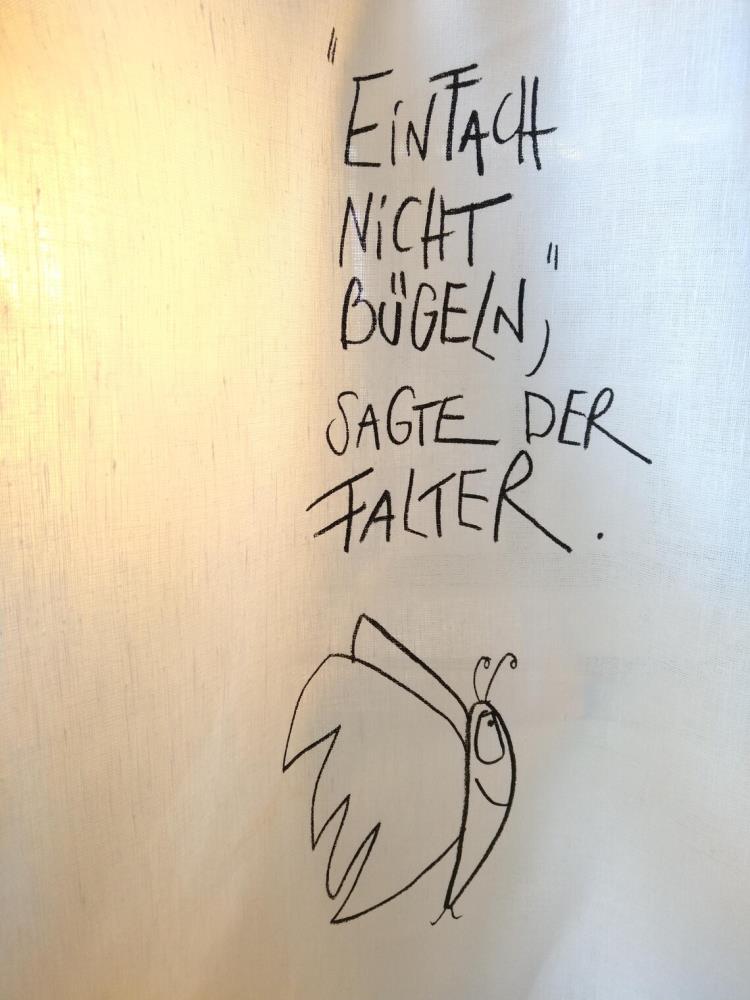 "EINFACH
NICHT
BÜGELN",
SAGTE DER
FALTER.